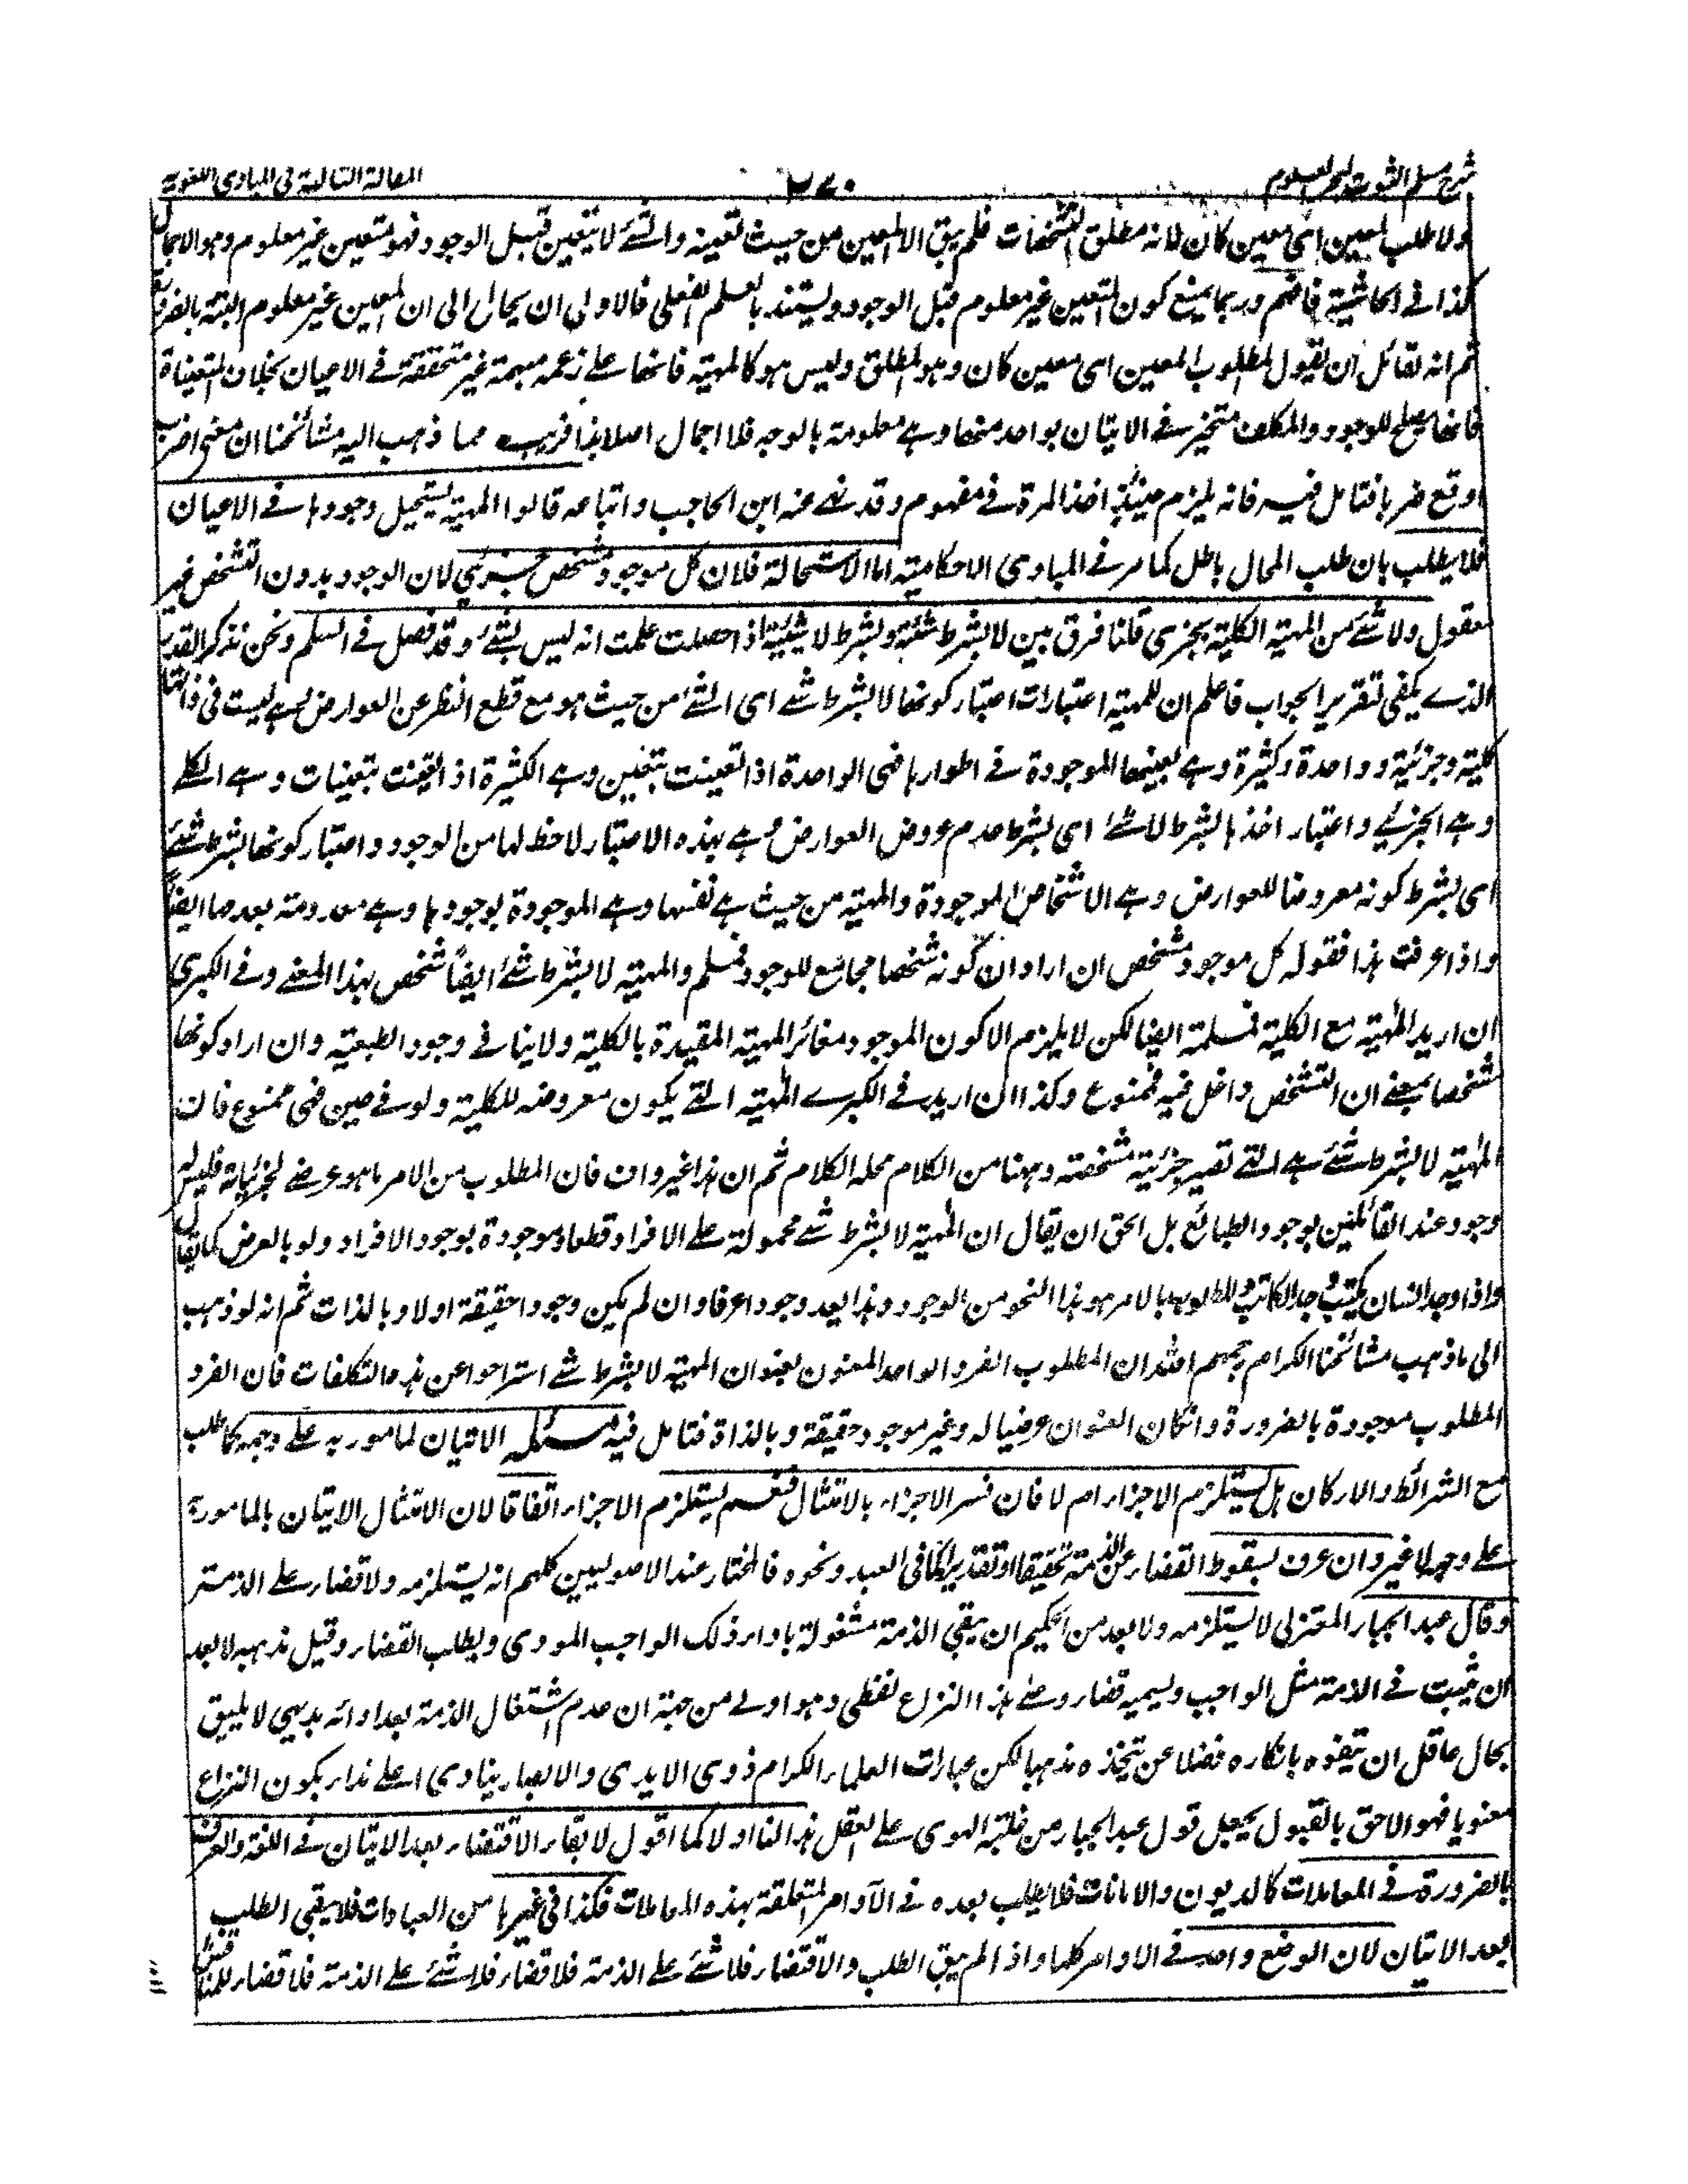 شرح مسلم الثبوت لبحر العلوم ٢٧٠ المقالة الثالثة فى المبادى اللغوية
ولا طلب لمعين اى معين كان لانه مطلق التشخصات فلم يبق الا المعين من حيث تعينه والشئ لا يتعين قبل الوجود فهو متعين غير معلوم وهو الاجمال
كذا فى الحاشية فافهم وربما يمنع كون المتعين غير معلوم قبل الوجود ويستند بالعلم الفعلى فالاولى ان يحال الى ان المعين غير معلوم البتة بالضرورة
ثم انه لقائل ان يقول المطلوب المعين اى معين كان وهو المطلق وليس هو كالمهية فانها على زعمه مبهمة غير متحققة فى الاعيان بخلاف المتعيناة
فانها يصلح للوجود والمكلف متخير فى الاتيان بواحد منها وهى معلومة بالوجه فلا اجمال اصلا هذا قريب مما ذهب اليه مشائخنا ان معنى اضرب
اوقع ضربا فتامل فيه فانه يلزم حينئذ اخذ المرة فى مفهوم وقد نص عنه ابن الحاجب واتباعه قالوا المهية يستحيل وجودها فى الاعيان
فلا يطلب بان طلب المحال باطل كما مر فى المبادى الاحكامية اما الاستحالة فلان كل موجود متشخص جزئى لان الوجود بدون التشخص غير
معقول ولا شئ من المهية الكلية بجزى قلنا فرق بين لا بشرط شئ وبشرط لا شيئية اذا حصلت علمت انه ليس بشئ وقد فصل فى السلم ونحن نذكر القدر
الذى يكفى لتقرير الجواب فاعلم ان للمهية اعتبارات اعتبار كونها لا بشرط شئ اى الشئ من حيث هو مع قطع النظر عن العوارض هى ليست فى ذاتها
كلية وجزئية وواحدة وكثيرة وهى بعينها الموجودة فى اطوارها فهى الواحدة اذا تعينت بتعين وهى الكثيرة اذ القينت بتعينات وهى الكلى
وهى الجزئى واعتبار اخذها بشرط لا شئ اى بشرط عدم عروض العوارض وهى بهذه الاعتبار لا حظ لها من الوجود واعتبار كونها بشرط شئ
اى بشرط كونه معروضا للعوارض وهى الاشخاص الموجودة والمهية من حيث هى نفسها وهى الموجودة بوجودها وهى معدومة بعدمها ايضا
واذا عرفت هذا فقوله كل موجود مشخص ان اراد ان كونه شخصا مجامع للوجود فمسلم والمهية لا بشرط شئ ايضا شخص بهذا المعنى وفى الكبرى
ان اريد المهية مع الكلية فمسلمة ايضا لكن لا يلزم الا كون الموجود مغائر المهية المقيدة بالكلية ولا ينافى وجود الطبعية وان اراد كونها
شخصا بمعنى ان التشخص داخل فيه فممنوع وكذا ان اريد فى الكبرى المهية التى يكون معروضه للكلية ولو فى حين فهى ممنوع فان
المهية لا بشرط شئ هى التى تصير جزئية مشخصة وههنا من الكلام محله الكلام ثم ان هذا غير واف فان المطلوب من الامر ما هو عرضى لجزئياته فليس له
وجود عند القائلين بوجود الطبائع بل الحق ان يقال ان المهية لا بشرط شئ محمولة على الافراد قطعا وموجودة بوجود الافراد ولو بالعرض كما يقال
واذا وجد انسان يكتب وجد الكاتب والمطلوب بالامر هو هذا النحو من الوجود وهذا يعد وجودا عرفا وان لم يكن وجودا حقيقة اولا وبالذات ثم انه لو ذهب
الى ما ذهب مشائخنا الكرام رحمهم الله ان المطلوب الفرد الواحد المعنون بعنوان المهية لا بشرط شئ استراحوا عن هذه التكلفات فان الفرد
المطلوب موجودة بالضرورة وان كان العنوان عرضيا له وغير موجود حقيقة وبالذاة فتامل فيه مسئلة الاتيان لمامور به على وجهه كما طلب
مع الشرائط والاركان هل يستلزم الاجزاء ام لا فان فسر الاجزاء بالامتثال فنعم يستلزم الاجزاء اتفاقا لان الامتثال الاتيان بالمامور به
على وجهه لا غير وان عرف بسقوط القضاء عن الذمة تحقيقا او تقديرا كما فى العيد ونحوه فالمختار عند الاصوليين كلهم انه يستلزمه ولا قضاء على الذمة
وقال عبد الجبار المعتزلى لا يستلزمه ولا بعد من الحكيم ان يبقى الذمة مشغولة باداء ذلك الواجب المودى ويطلب القضاء وقيل مذهبه لا بعد
ان يثبت فى الذمة مثل الواجب ويسميه قضاء وعلى هذا النزاع لفظى وهو اولى من جهة ان عدم اشتغال الذمة بعد ادائه بديهى لا يليق
بحال عاقل ان يتفوه بانكاره فضلا عن يتخذه مذهبا لكن عبارات العلماء الكرام ذوى الايدى والابصار ينادى اعلى نداء بكون النزاع
معنويا فهو الاحق بالقبول يجعل قول عبد الجبار من غلبة الهوى على العقل هذا لنا اولا كما اقول لا بقاء الاقتضاء بعد الاتيان فى اللغة والعرف
بالضرورة فى المعاملات كالديون والامانات فلا يطلب بعده فى الآوامر المتعلقة بهذه المعاملات فكذا فى غيرها من العبادات فلا يبقى الطلب
بعد الاتيان لان الوضع واحد فى الاوامر كلها واذا لم يبق الطلب والاقتضاء فلا شئ على الذمة فلا قضاء فلا شئ على الذمة فلا قضاء